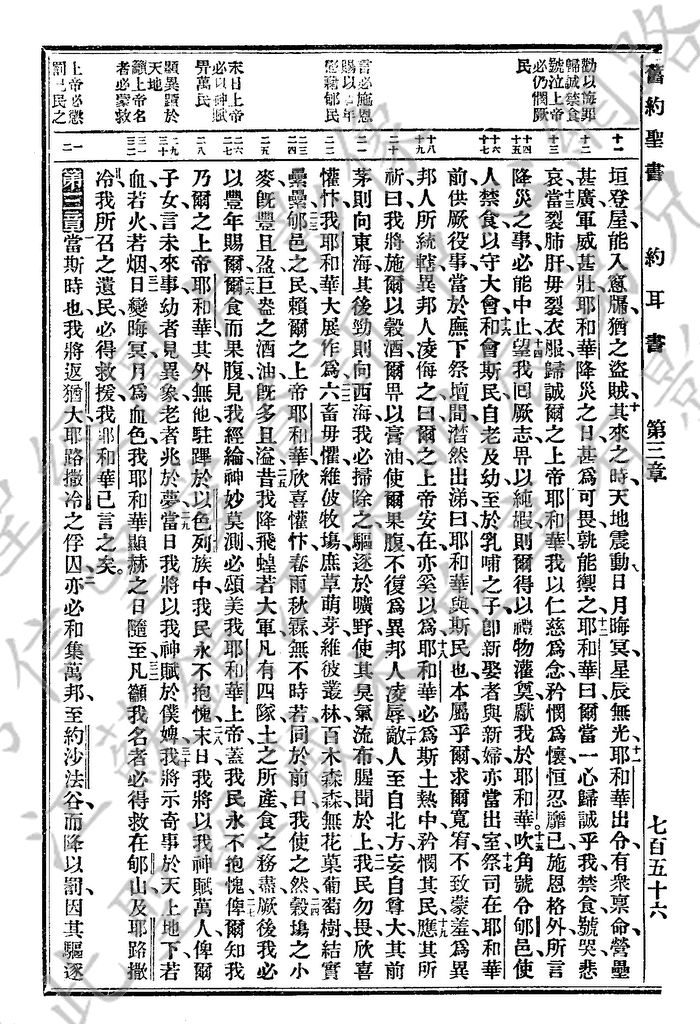 舊約聖書　約耳書　第二章　七百五十六
勸以悔罪
歸誠禁食
號泣上帝
必仍憫厥
民
言必施恩
賜以豐年
慰藉郇民
末日上帝
必以神賦
畀萬民
顯異蹟於
天地
籲上帝名
者必蒙救
上帝必懲
罰己民之
垣登屋能入窻牖猶之盜賊其來之時天地震動日月晦冥星辰無光耶和華出令有衆稟命營壘
甚廣軍威甚壯耶和華降災之日甚爲可畏孰能禦之耶和華曰爾當一心歸誠乎我禁食號哭悲
哀當裂肺肝毋裂衣服歸誠爾之上帝耶和華我以仁慈爲念矜憫爲懷恒忍靡已施恩格外所言
降災之事必能中止望我回厥志畀以純嘏則爾得以禮物灌奠獻我於耶和華。吹角號令郇邑使
人禁食以守大會和會斯民自老及幼至於乳哺之子卽新娶者與新婦亦當出室祭司在耶和華
前供厥役事當於廡下祭壇間潸然出涕曰耶和華與斯民也本屬乎爾求爾寬宥不致蒙羞爲異
邦人所統轄異邦人凌侮之曰爾之上帝安在亦奚以爲耶和華必爲斯土熱中矜憫其民應其所
祈曰我將施爾以穀酒爾畀以膏油使爾果腹不復爲異邦人凌辱敵人至自北方妄自尊大其前
茅則向東海其後勁則向西海我必掃除之驅逐於曠野使其臭氣流布腥聞於上我民勿畏欣喜
懽忭我耶和華大展作爲六畜毋懼維彼牧塲庶草萌芽維彼叢林百木森森無花菓葡萄樹結實
纍纍郇邑之民賴爾之上帝耶和華欣喜懽忭春雨秋霖無不時若同於前日我使之然穀塲之小
麥旣豐且盈巨盎之酒油旣多且溢昔我降飛蝗若大軍凡有四隊土之所產食之務盡厥後我必
以豐年賜爾爾食而果腹見我經綸神妙莫測必頌美我耶和華上帝蓋我民永不抱愧俾爾知我
乃爾之上帝耶和華其外無他駐蹕於以色列族中我民永不抱愧末日我將以我神賦萬人俾爾
子女言未來事幼者見異象老者兆於夢當日我將以我神賦於僕婢我將示奇事於天上地下若
血若火若烟日變晦冥月爲血色我耶和華顯赫之日隨至凡籲我名者必得救在郇山及耶路撒
冷我所召之遺民必得救援我耶和華已言之矣。
第三章當斯時也我將返猶大耶路撒冷之俘囚亦必和集萬邦至約沙法谷而降以罰因其驅逐